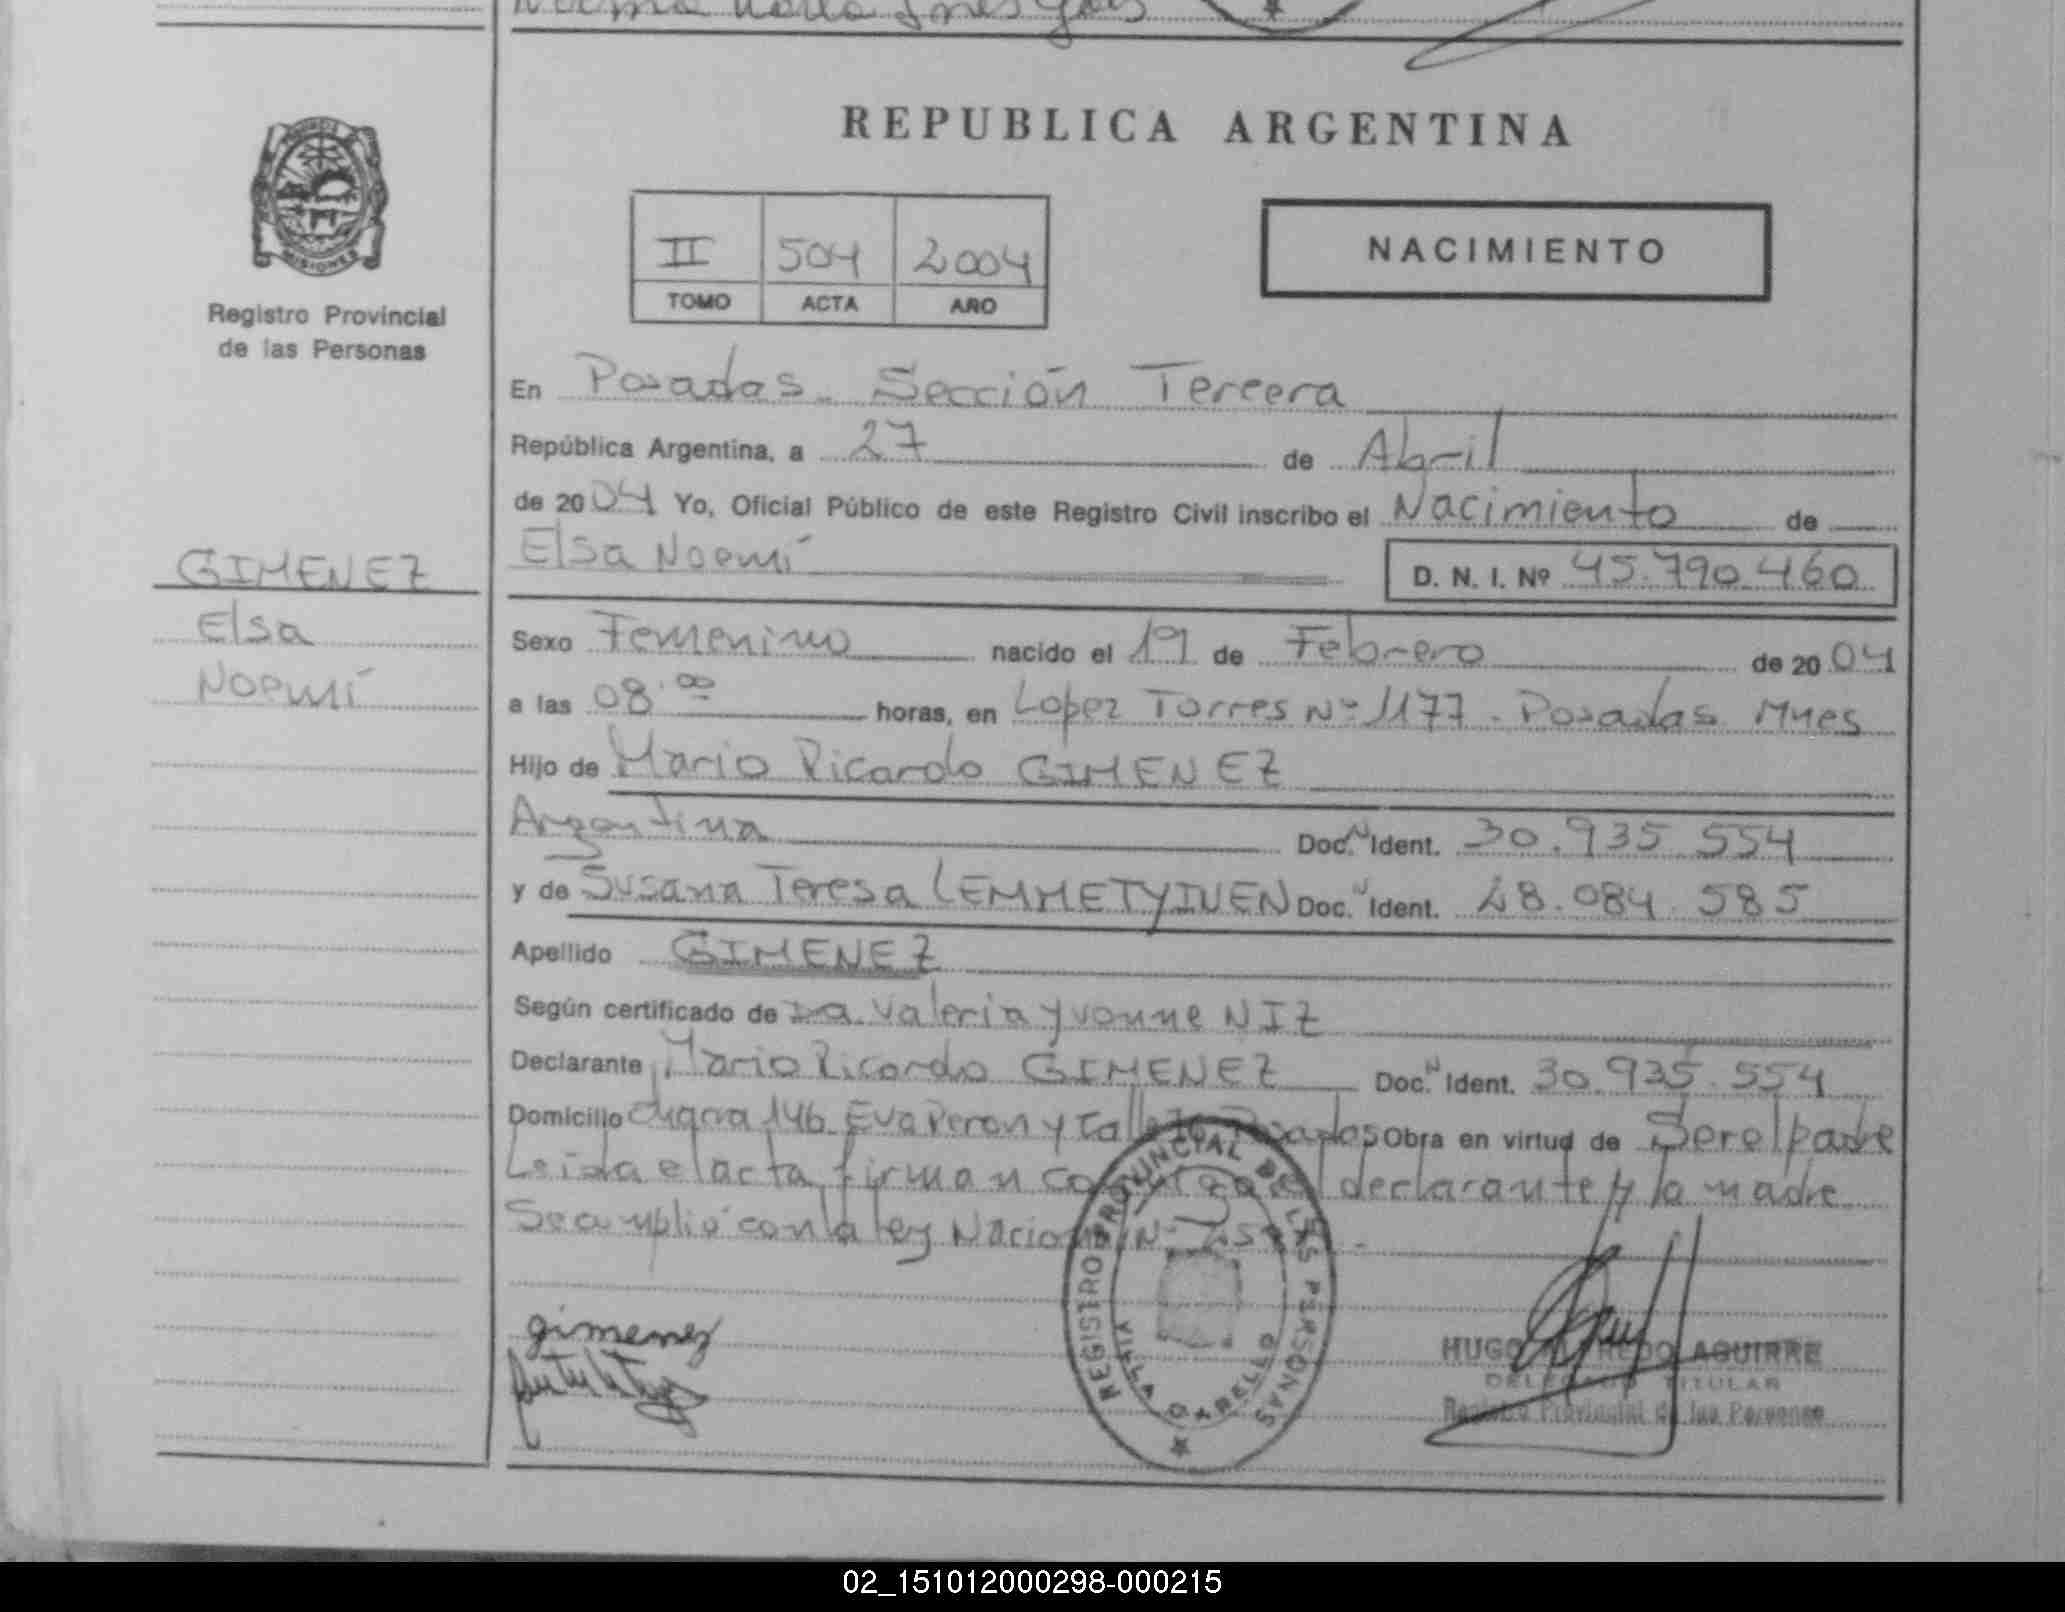 REPUBLICA ARGENTINA
MISIONES
Registro Provincial
de las Personas
II 504 2004
TOMO ACTA AÑO
NACIMIENTO
En Posadas - Sección Tercera
República Argentina, a 27 de Abril
de 2004 Yo, Oficial Público de este Registro Civil inscribo el Nacimiento de
Elsa Noemí D. N. I. Nº 45.790.460
GIMENEZ
Elsa
Noemí
Sexo Femenino nacido el 19 de Febrero de 2004
a las 08.00 horas, en Lopez Torres Nº 1177 - Posadas Mnes
Hijo de Mario Ricardo GIMENEZ
Argentina Doc. N Ident. 30.935.554
y de Susana Teresa LEMMETYINEN Doc. N Ident. 28.084.585
Apellido GIMENEZ
Según certificado de Da. Valeria Yvonne NIZ
Declarante Mario Ricardo GIMENEZ Doc. N Ident. 30.935.554
Domicilio Chacra 146 Eva Peron y Calle Posadas Obra en virtud de Ser el padre
Leida el acta, firman conmigo el declarante y la madre
Se cumplió con la ley Nacional Nº
gimenez
REGISTRO PROVINCIAL DE LAS PERSONAS
VILLA CABELLO
HUGO ALFREDO AGUIRRE
DELEGADO TITULAR
Registro Provincial de las Personas
02_151012000298-000215